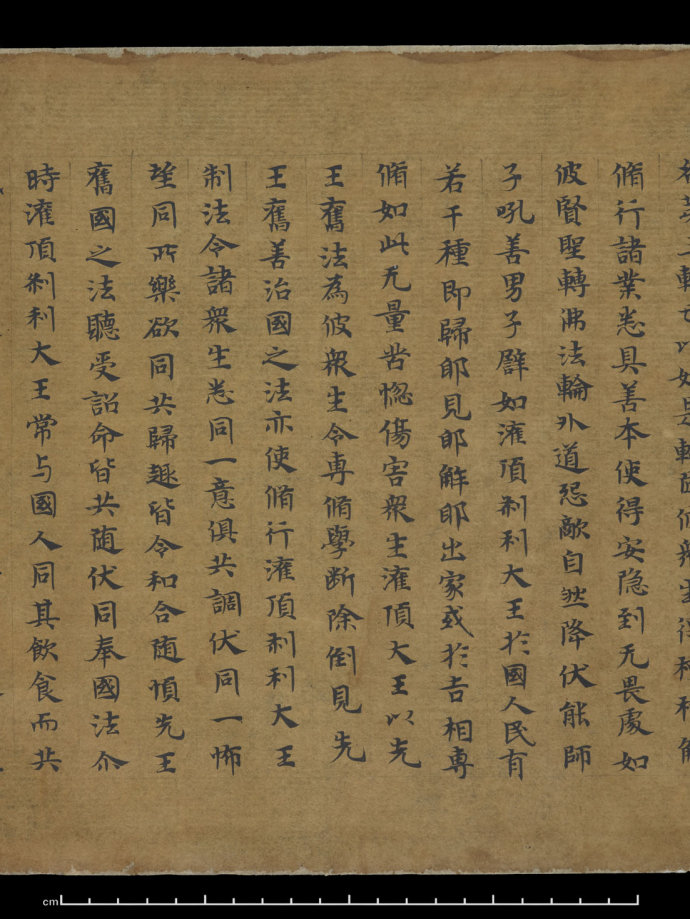 以如是轉
脩行諸業悉具善本使得安隱到无畏處如
彼賢聖轉沸法輪外道怨敵自然降伏能師
子吼善男子譬如灌頂刹利大王於國人民有
若干種即歸邪見邪解邪出家或於吉相專
脩如此无量苦惱傷害衆生灌頂大王以先
王舊法為彼衆生令專脩學斷除倒見先
王舊善治國之法亦使脩行灌頂刹利大王
制法令諸衆生悉同一意俱共調伏同一怖
望同所樂欲同共歸趣皆令和合随順先王
舊國之法聽受詔命皆共随伏同奉國法尒
時灌頂刹利大王常与國人同其飲食而共
cm